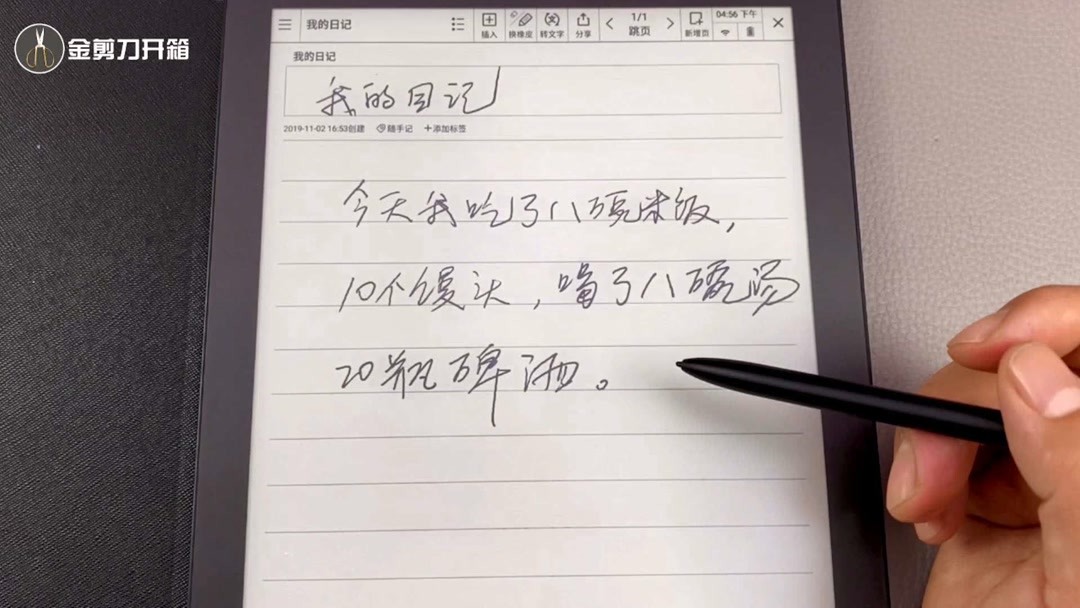 金剪刀开箱
我的日记
插入 换橡皮 转文字 分享 1/1 跳页 新增页 04:56 下午
我的日记
我的日记
2019-11-02 16:53创建 随手记 +添加标签
今天我吃了八碗米饭，
10个馒头，喝了八碗汤
20瓶碑酒。